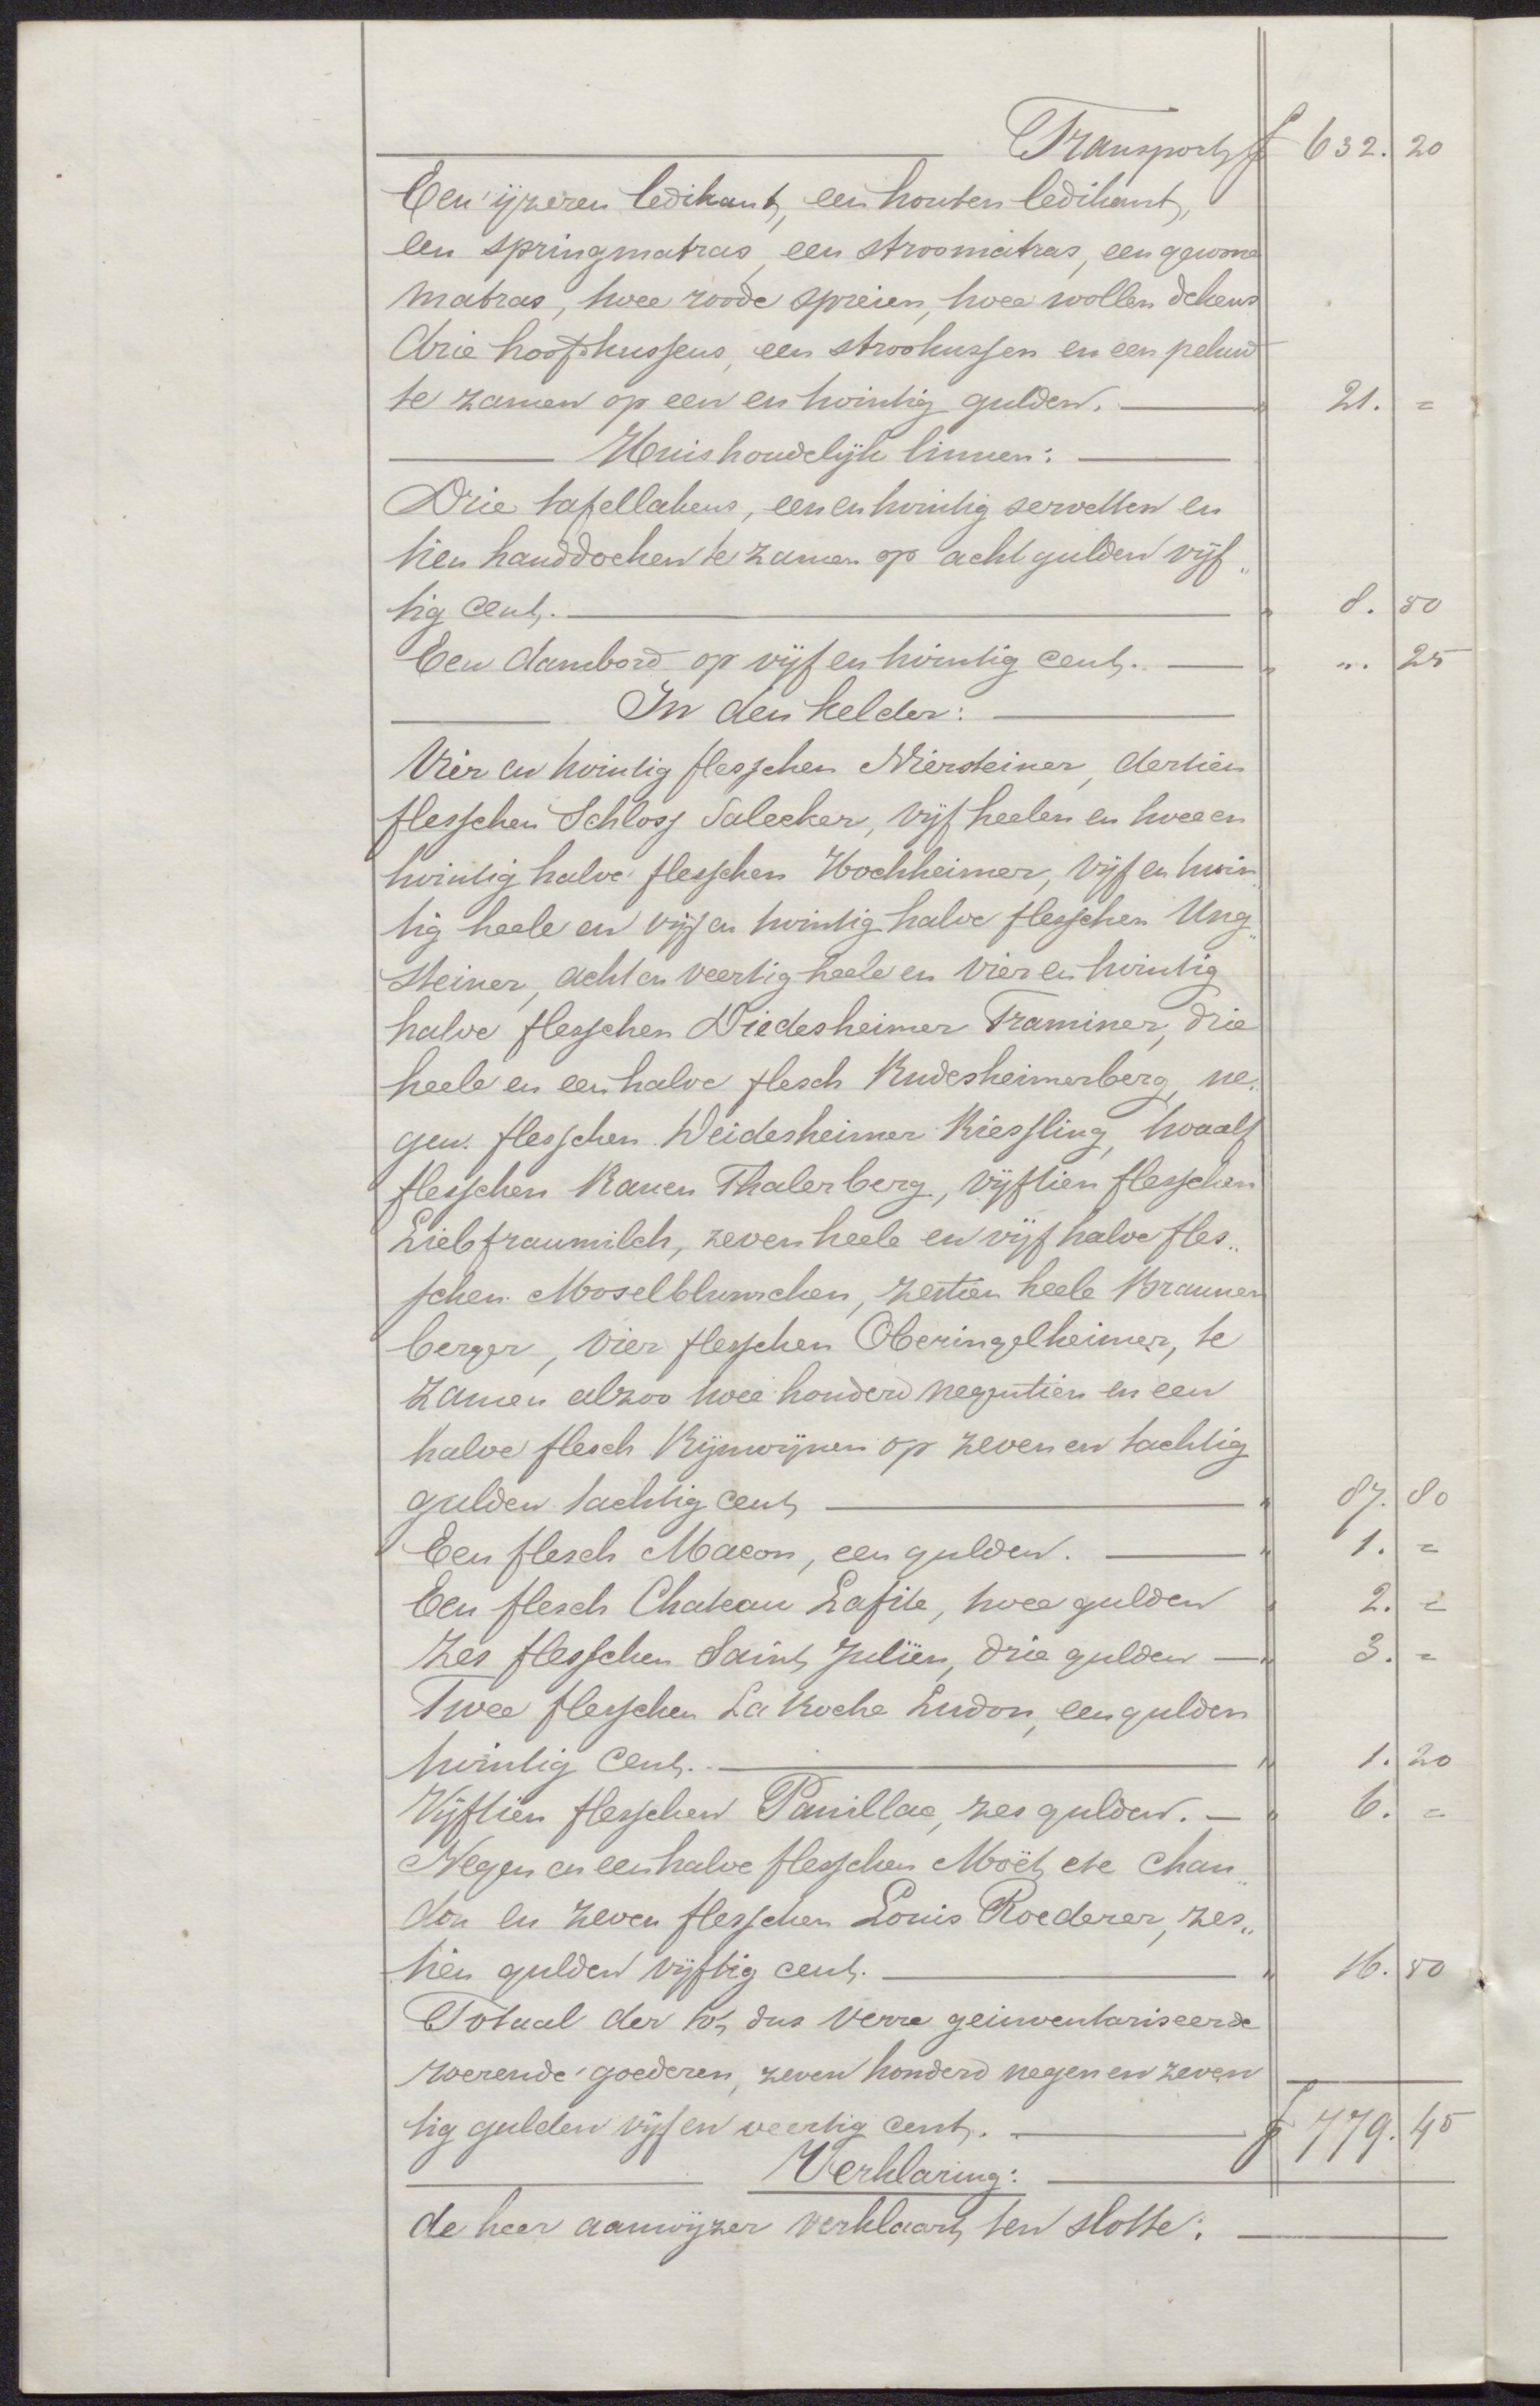 Transport f 632. 20
Een ijzeren ledikant, een houten ledikant,
een springmatras, een stroomatras, een gewone
matras, twee roode spreien, twee wollen dekens
drie hoofdkussens, een strookussen en een peluw
te zamen op een en twintig gulden. " 21. =
Huishoudelijk linnen:
Drie tafellakens, een en twintig servetten en
tien handdoeken te zamen op acht gulden vijf„
tig cent. " 8. 50
Een dambord op vijf en twintig cent. " „. 25
In den kelder:
Vier en twintig flesschen Niersteiner, dertien
flesschen Schloss Salecker, vijf heelen en twee en
twintig halve flesschen Hochheimer, vijf en twin„
tig heele en vijf en twintig halve flesschen Ung„
steiner, acht en veertig heele en vier en twintig
halve flesschen Diedesheimer Traminer, drie
heele en een halve flesch Rudesheimerberg, ne„
gen flesschen Deidesheimer Riessling, twaalf
flesschen Rauen Thalerberg, vijftien flesschen
Liebfraumilch, zeven heele en vijf halve fles„
schen Moselblumchen, zestien heele Brauner
berger, vier flesschen Oberingelheimer, te
zamen alzoo twee honderd negentien en een
halve flesch Rijnwijnen op zeven en tachtig
gulden tachtig cent " 87. 80
Een flesch Macon, een gulden. " 1. =
Een flesch Chateau Lafite, twee gulden " 2. =
Zes flesschen Saint Juliën, drie gulden " 3. =
Twee flesschen La Roche Ludon, een gulden
twintig cent. " 1. 20
Vijftien flesschen Pauillac, zes gulden. " 6. =
Negen en een halve flesschen Moët ete Chan„
don en zeven flesschen Louis Roederer, zes„
tien gulden vijftig cent. " 16. 50
Totaal der tot dus verre geinventariseerde
roerende goederen, zeven honderd negen en zeven
tig gulden vijf en veertig cent. f 779. 45
Verklaring:
de heer aanwijzer verklaart ten slotte: